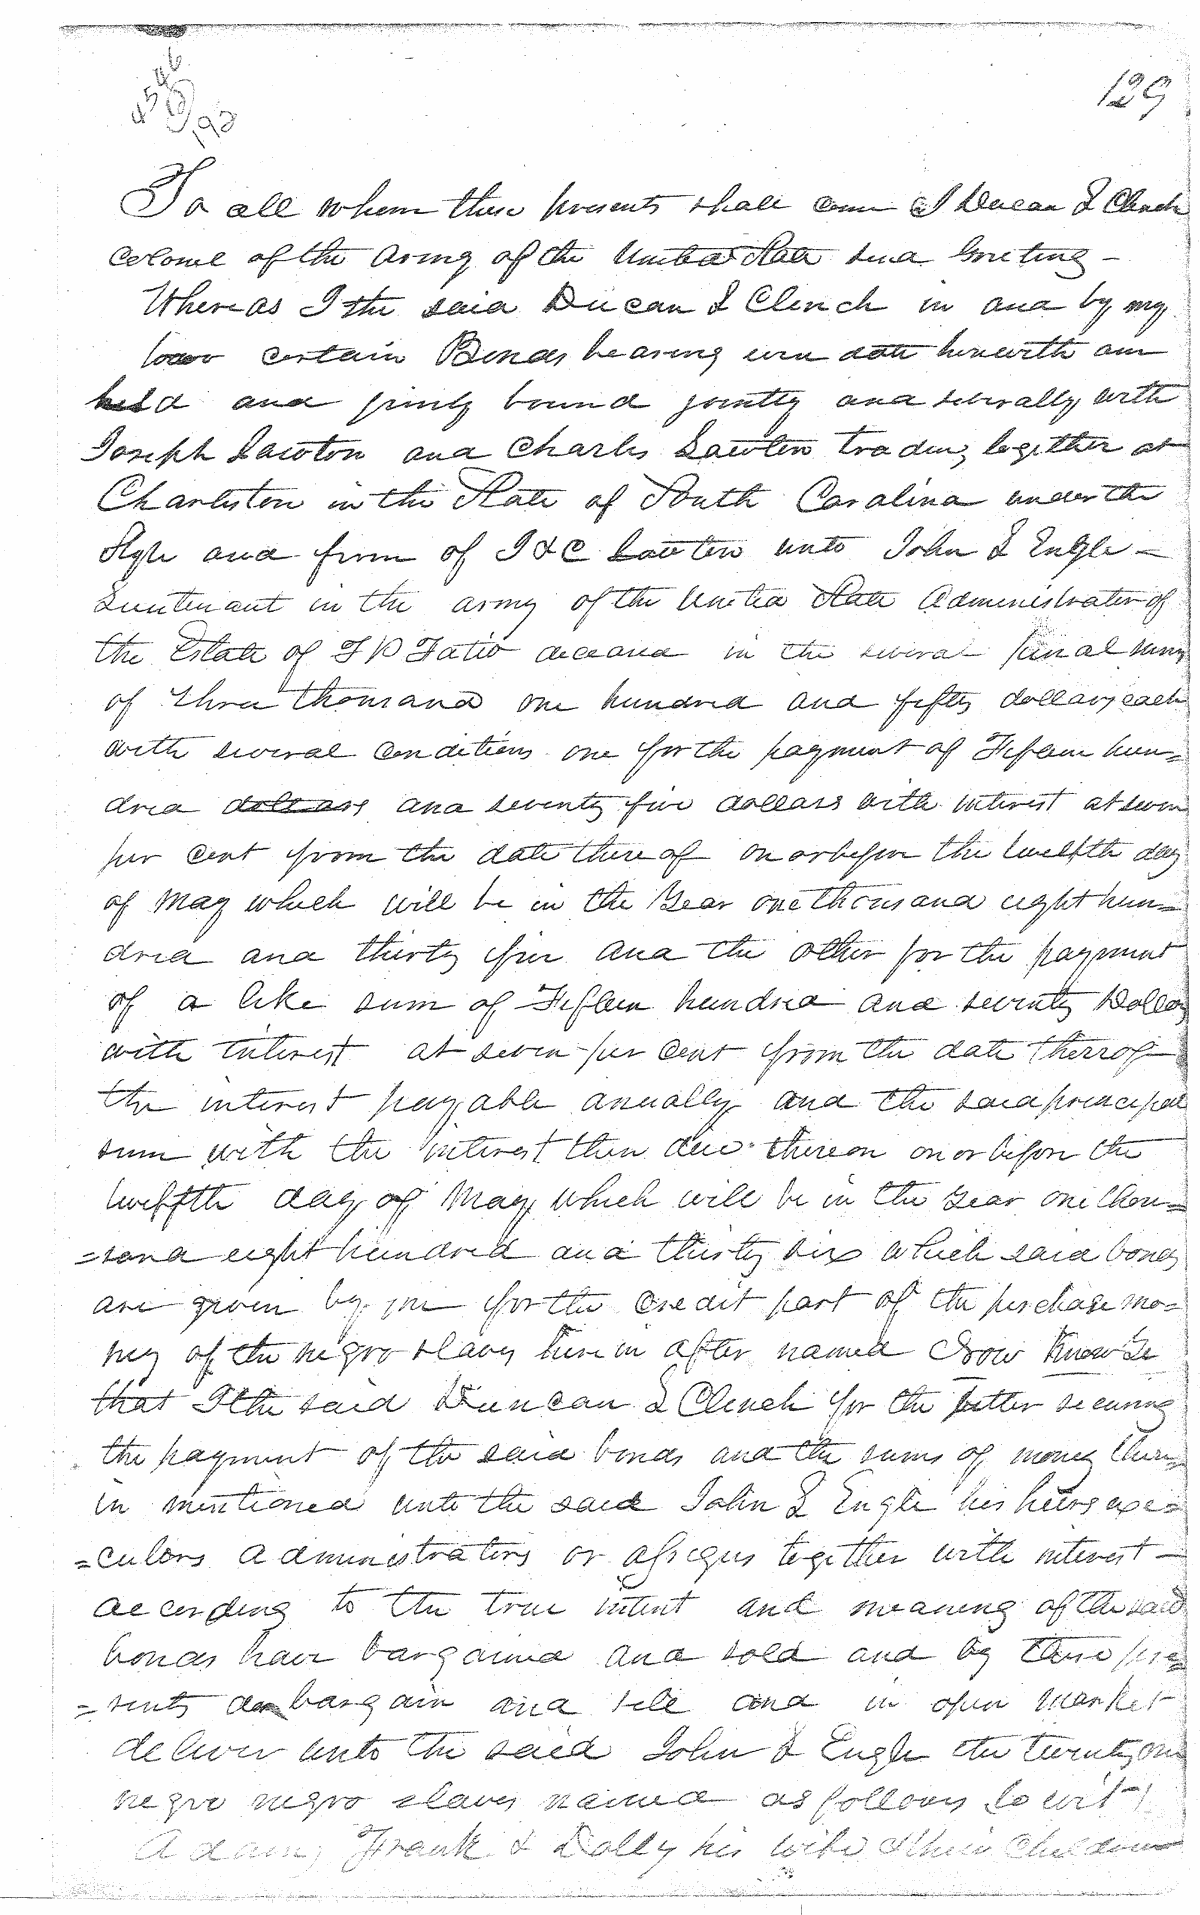 129
To all whom these presents shall come I Duncan L Clinch
Colonel of the Army of the United State send Greeting –
Whereas I the said Ducan L Clinch in and by my
certain Bonds bearing even date herewith am
held and firmly bound jointly and severally with
Joseph Lawton and Charles Lawton trading together at
Charleston in the State of South Carolina under the
Style and firm of J & C Lawton unto John L Engle –
Lieutenant in the army of the United State Administrator of
the Estate of F P Fatio deceased in the several penal sums
of three thousand one hundred and fifty dollars each
with several conditions one for the payment of Fifteen hun=
dred dollars and seventy five dollars with interest at seven
per cent from the date there of on or before the twelfth day
of May which will be in the Year one thousand eight hun=
dred and thirty five and the other for the payment
of a like sum of Fifteen hundred and seventy Dollars
with interest at seven per cent from the date therrof
the interest payable anually and the said principal
sum with the interest then due thereon on or before the
twelfth day of May which will be in the year one thou=
=sand eight hundred and thirty six which said bonds
are given by me for the credit part of the purchase mo=
ney of the negro slaves herein after named Now Know Ye
that I the said Duncan L Clinch for the better securing
the payment of the said bonds and the sums of money there
in mentioned unto the said John L Engle his heirs exe=
=cutors administrators or assigns together with interest –
according to the true intent and meaning of the said
bonds have bargained and sold and by these pre=
=sents do bargain and sell and in open market
deliver unto the said John L Engle the twenty one
negro negro slaves named as follows to wit
Adam, Frank & Dolly his wife & their Children